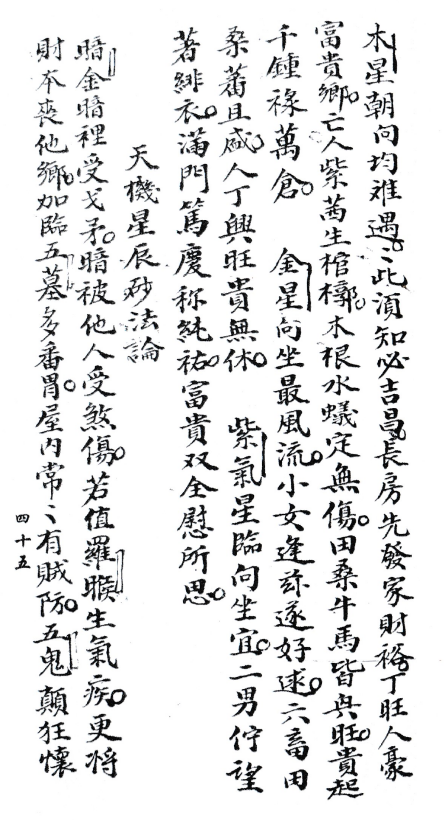 木星朝向均难遇。遇此須知必吉昌。長房先發家財裕。丁旺人豪
富貴鄉。亡人紫茜生棺槨。木根水蟻定無傷。田桑牛馬皆與旺。貴起
千鍾禄萬倉。　金星向坐最風流。小女逢玆遂好逑。六畜田
桑蕃且盛。人丁興旺貴無休。　紫氣星臨向坐宜。二男佇望
著緋衣。滿門篤慶称純祐。富貴双全慰所思。
天機星辰砂法論
暗金暗裡受戈矛。暗被他人受煞傷。若值羅㬋生氣疾。更将
財本喪他鄉。加臨五墓多番胃。屋内常々有賊防。五鬼顛狂懷
四十五